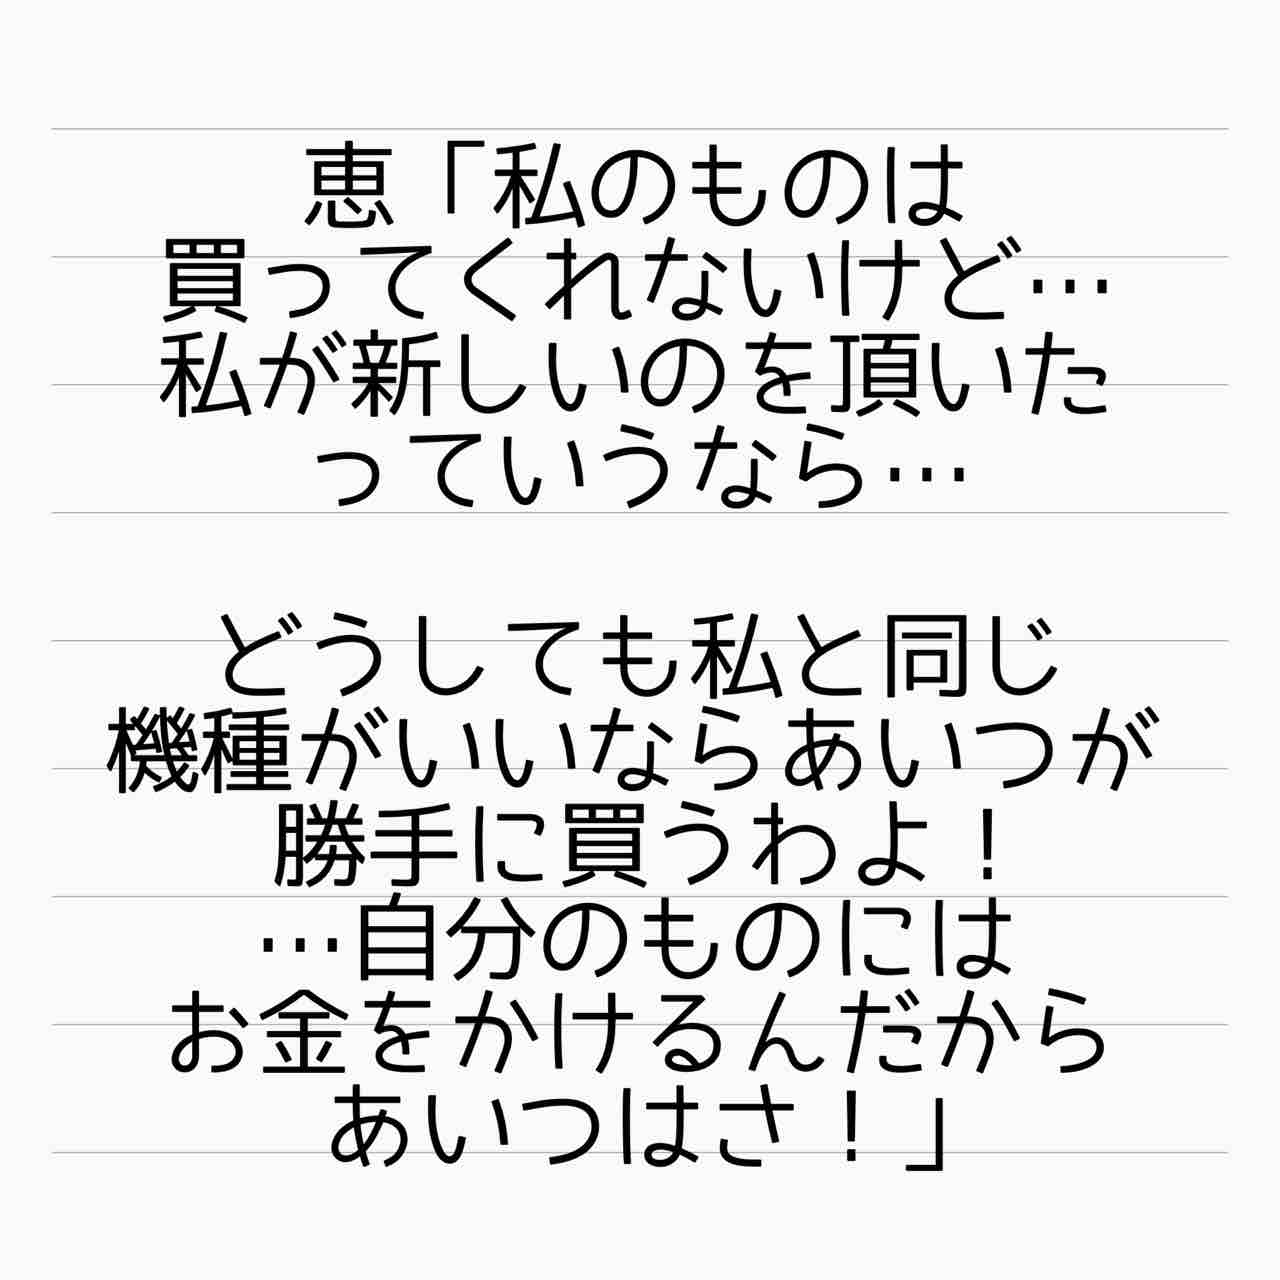 恵「私のものは
買ってくれないけど…
私が新しいのを頂いた
っていうなら…
どうしても私と同じ
機種がいいならあいつが
勝手に買うわよ！
…自分のものには
お金をかけるんだから
あいつはさ！」